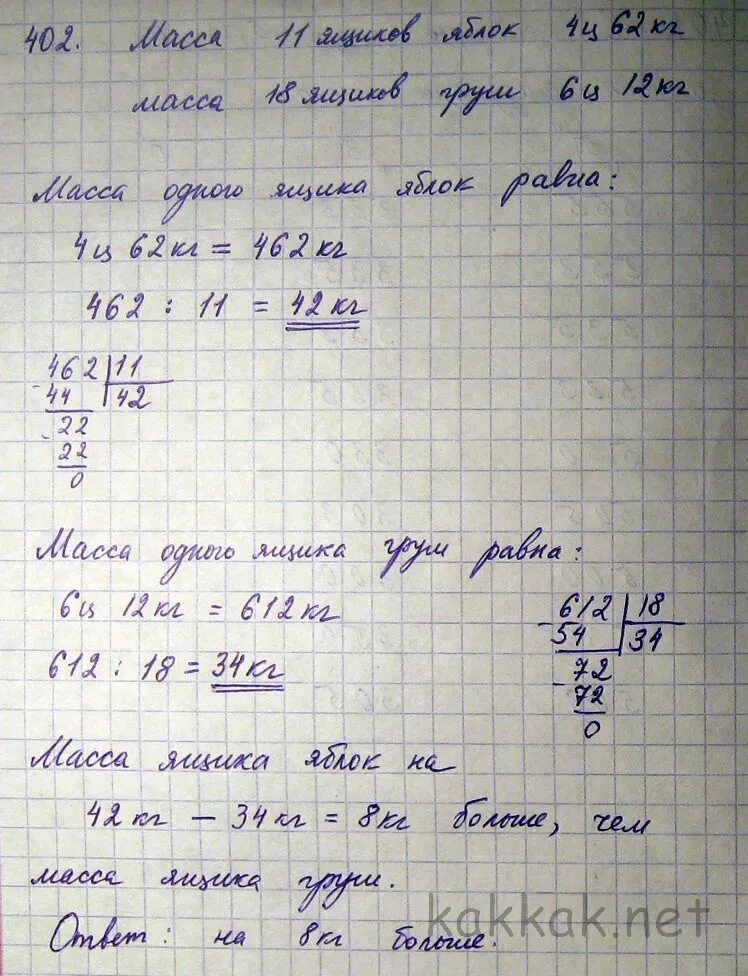 402. Масса 11 ящиков яблок 4ц 62кг
масса 18 ящиков груш 6ц 12кг
Масса одного ящика яблок равна:
4ц 62кг = 462кг
462 : 11 = 42кг
462 11
44 42
22
22
0
Масса одного ящика груш равна:
6ц 12кг = 612кг
612 : 18 = 34кг
612 18
54 34
72
72
0
Масса ящика яблок на
42кг – 34кг = 8кг больше, чем
масса ящика груш.
Ответ: на 8кг больше.
kakkak.net